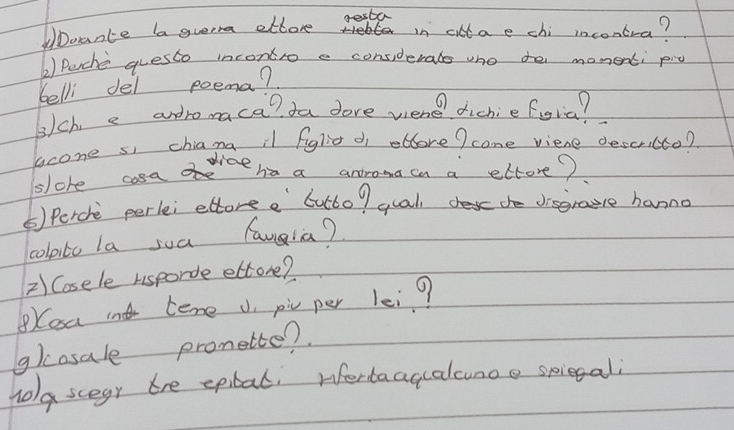 1) Durante la guerra ettore resta in citta e chi incontra?
2) Perchè questo incontro e considerato uno dei momenti piu
belli del poema?
3) chi e andromaca? da dove viene? di chi e figlia?
4 come si chiama il figlio di ettore? come viene descritto?
5) che cosa dice ha a andromaca a ettore?
6) Perchè per lei ettore e' tutto? quali disgrazie hanno
colpito la sua famiglia?
7) Cosa le risponde ettore?
8) Cosa teme di piu per lei?
9) cosa le promette?
10) scegr tre epitati riferta a qualcuno e spiegali